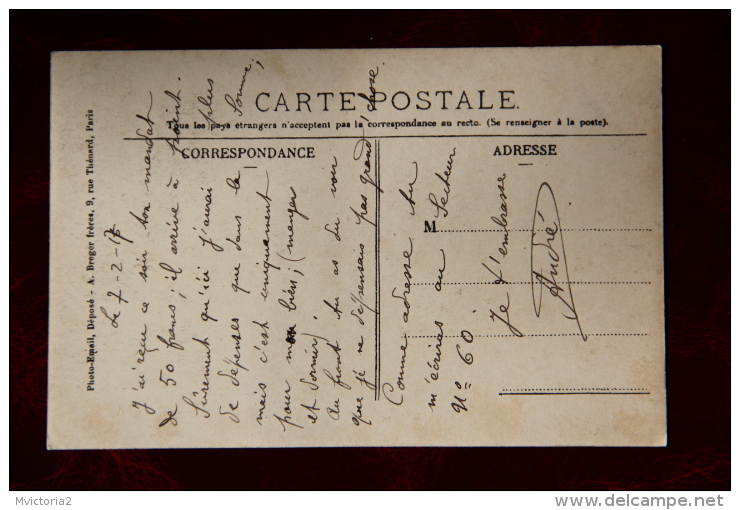 CARTE POSTALE
Tous les pays étrangers n'acceptent pas la correspondance au recto. (Se renseigner à la poste).
CORRESPONDANCE
ADRESSE
M
Photo-Email, Déposé - A. Breger frères, 9, rue Thénard, Paris
Le 7-2-17
J'ai reçu ce soir ton mandat
de 50 francs ; il arrive à point.
Sûrement qu'ici j'aurai plus
de dépenses que dans la Somme,
mais c'est uniquement
pour mon bien ; (manger
et dormir)
Au front tu as du voir
que je ne dépensais pas grand'chose.
Comme adresse tu
m'écriras au Secteur
N° 60
Je t'embrasse
André
Mvictoria2
www.delcampe.net